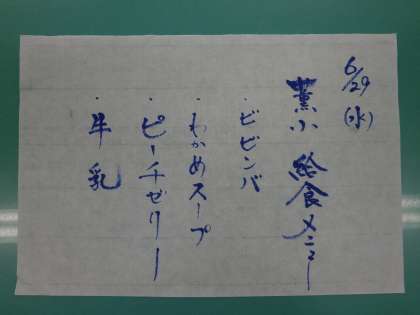 6/29(水)
薫小 給食メニュー
・ビビンバ
・わかめスープ
・ピーチゼリー
・牛乳